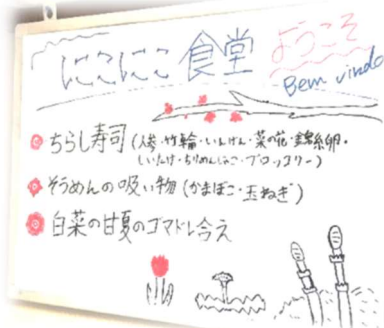 にこにこ食堂 ようこそ
Bem vindo
ちらし寿司(人参・竹輪・いんげん・菜の花・錦糸卵・
しいたけ・ちりめんじゃこ・ブロッコリー)
そうめんの吸い物(かまぼこ・玉ねぎ)
白菜の甘夏のゴマドレ合え